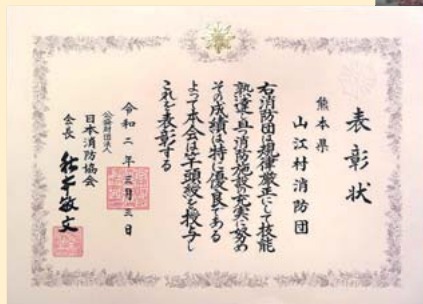 表彰状
熊本県
山江村消防団
右消防団は規律厳正にして技能
熟達し且つ消防施設の充実に努め
その成績は特に優良である
よって本会は竿頭綬を授与し
これを表彰する
令和二年三月三日
公益財団法人
日本消防協会
会長 秋本敏文